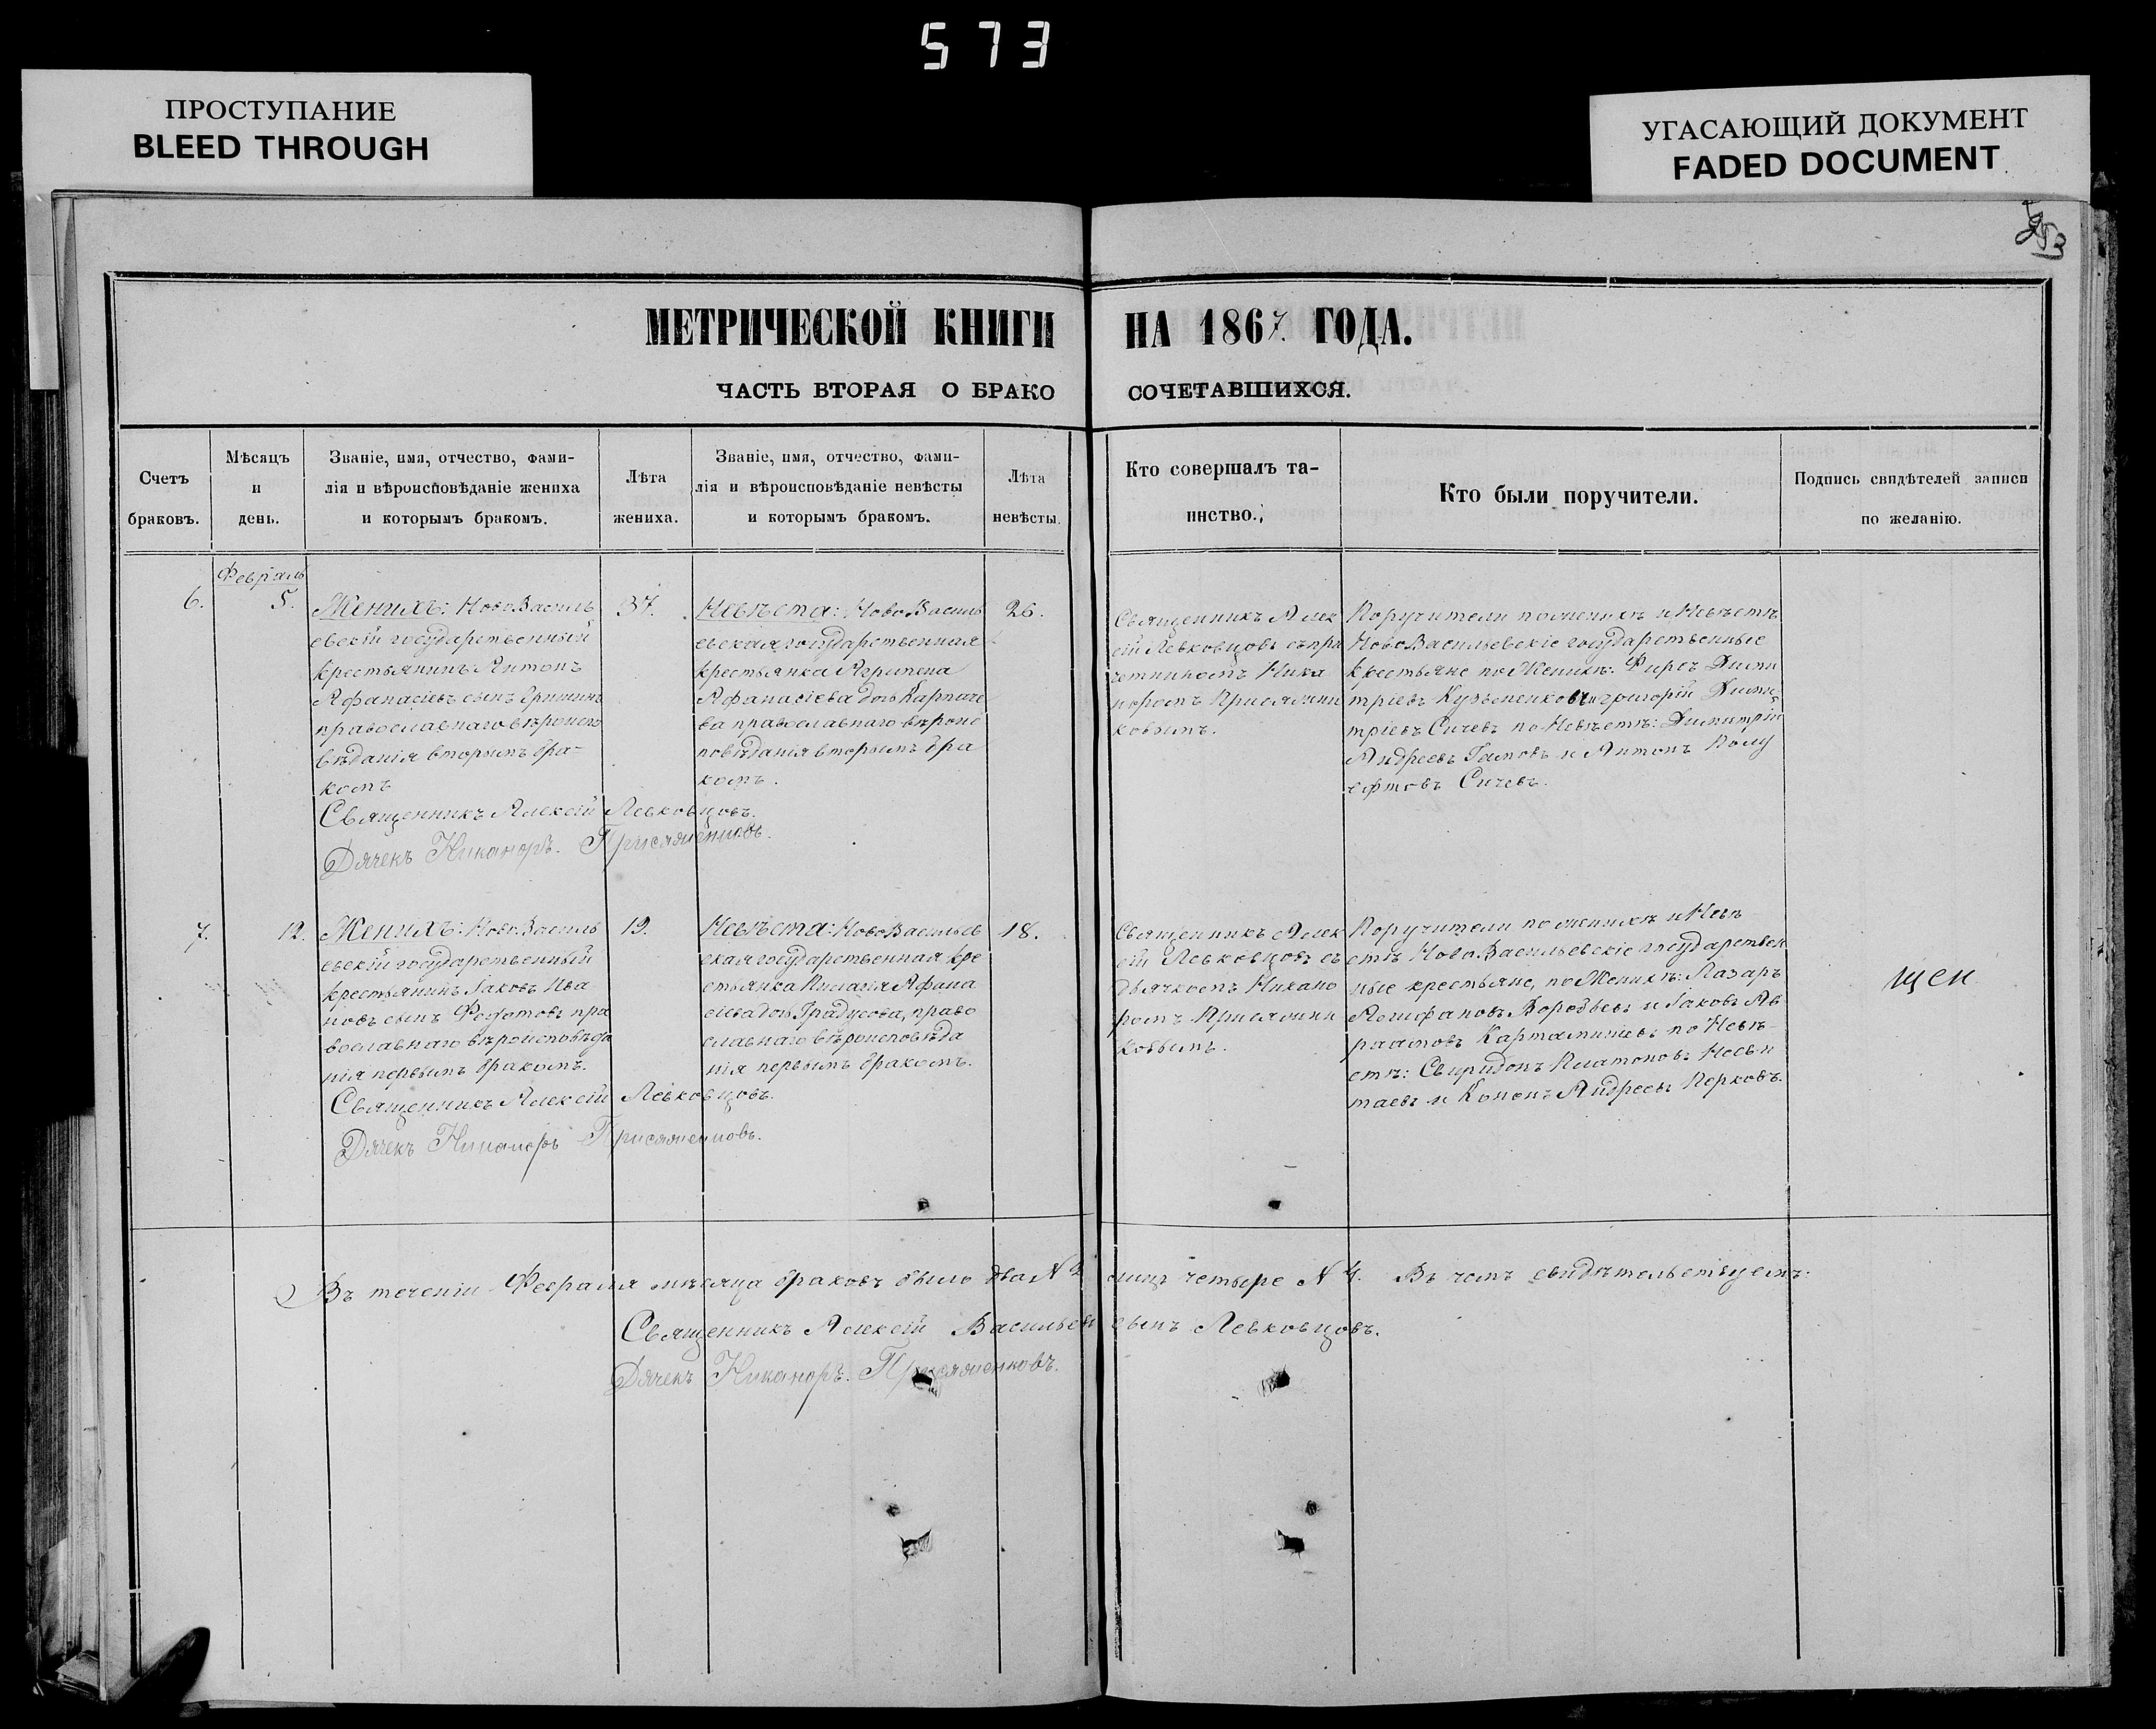 573
ПРОСТУПАНИЕ
BLEED THROUGH
УГАСАЮЩИЙ ДОКУМЕНТ
FADED DOCUMENT
МЕТРИЧЕСКОЙ КНИГИ НА 1867 ГОДА.
ЧАСТЬ ВТОРАЯ О БРАКО СОЧЕТАВШИХСЯ.
Счетъ
браковъ.
Мѣсяцъ
и
день.
Званіе, имя, отчество, фами-
лія и вѣроисповѣданіе жениха
и которымъ бракомъ.
Лѣта
жениха.
Званіе, имя, отчество, фами-
лія и вѣроисповѣданіе невѣсты
и которымъ бракомъ.
Лѣта
невѣсты.
Кто совершалъ та-
инство.
Кто были поручители.
Подпись свидѣтелей записи
по желанію.
Февраль
6.
5.
Женихъ: НовоВасиль
евскій государственный
крестьянинъ Антонъ
Афанасіевъ сынъ Гришинъ
православнаго вѣроиспо
вѣданія вторымъ бра-
комъ
37.
Невѣста: НовоВасиль
евская государственная
крестьянка Агрипена
Афанасіева дочь Карпаче
ва православнаго вѣроис
повѣданія вторымъ бра
комъ.
26.
Священникъ Алек
ѣй Левковцовъ съ при
четникомъ Ника
норомъ Присяжни
ковымъ.
Поручители по женихѣ и Невѣстѣ
НовоВасильевскіе государственные
крестьяне по Женихѣ: Фирсъ Дими
тріевъ Кузьменковъ и Григорій Дими
тріевъ Сичевъ по Невѣстѣ: Димитрій
Андреевъ Гамовъ и Антонъ Полу
ефтовъ Сичевъ.
Священникъ Алексій Левковцовъ.
Дячекъ Никаноръ. Присяженковъ.
7.
12.
Женихъ: НовоВасиль
евскій государственный
крестьянинъ Іаковъ Ива
новъ сынъ Федотовъ пра
вославнаго вѣроисповѣда
нія первымъ бракомъ.
19.
Невѣста: НовоВасильев
ская государственная кре
стьянка Пилагія Афана
сіева дочь Градусова, право
славнаго вѣроисповѣда
нія первымъ бракомъ.
18.
Священникъ Алек
ѣй Левковцовъ съ
дьячкомъ Никано
ромъ Присяжни
ковымъ.
Поручители по женихѣ и Невѣ
стѣ НовоВасильевскіе государствен
ные крестьяне, по Женихѣ: Лазарь
Епифановъ Воробьевъ и Іаковъ Ав
раамовъ Картамишевъ по Невѣ-
стѣ: Свиридонъ Платоновъ Несьи
таевъ и Кононъ Андреевъ Перковъ.
Священникъ Алексій Левковцовъ.
Дячекъ Никаноръ Присяженковъ.
Въ теченіи Февраля мѣсяца браковъ было два № 2 лицъ четыре № 4. Въ чемъ свидѣтельствуемъ:
Священникъ Алексій Васильевъ сынъ Левковцовъ.
Дячекъ Никаноръ. Присяженковъ.